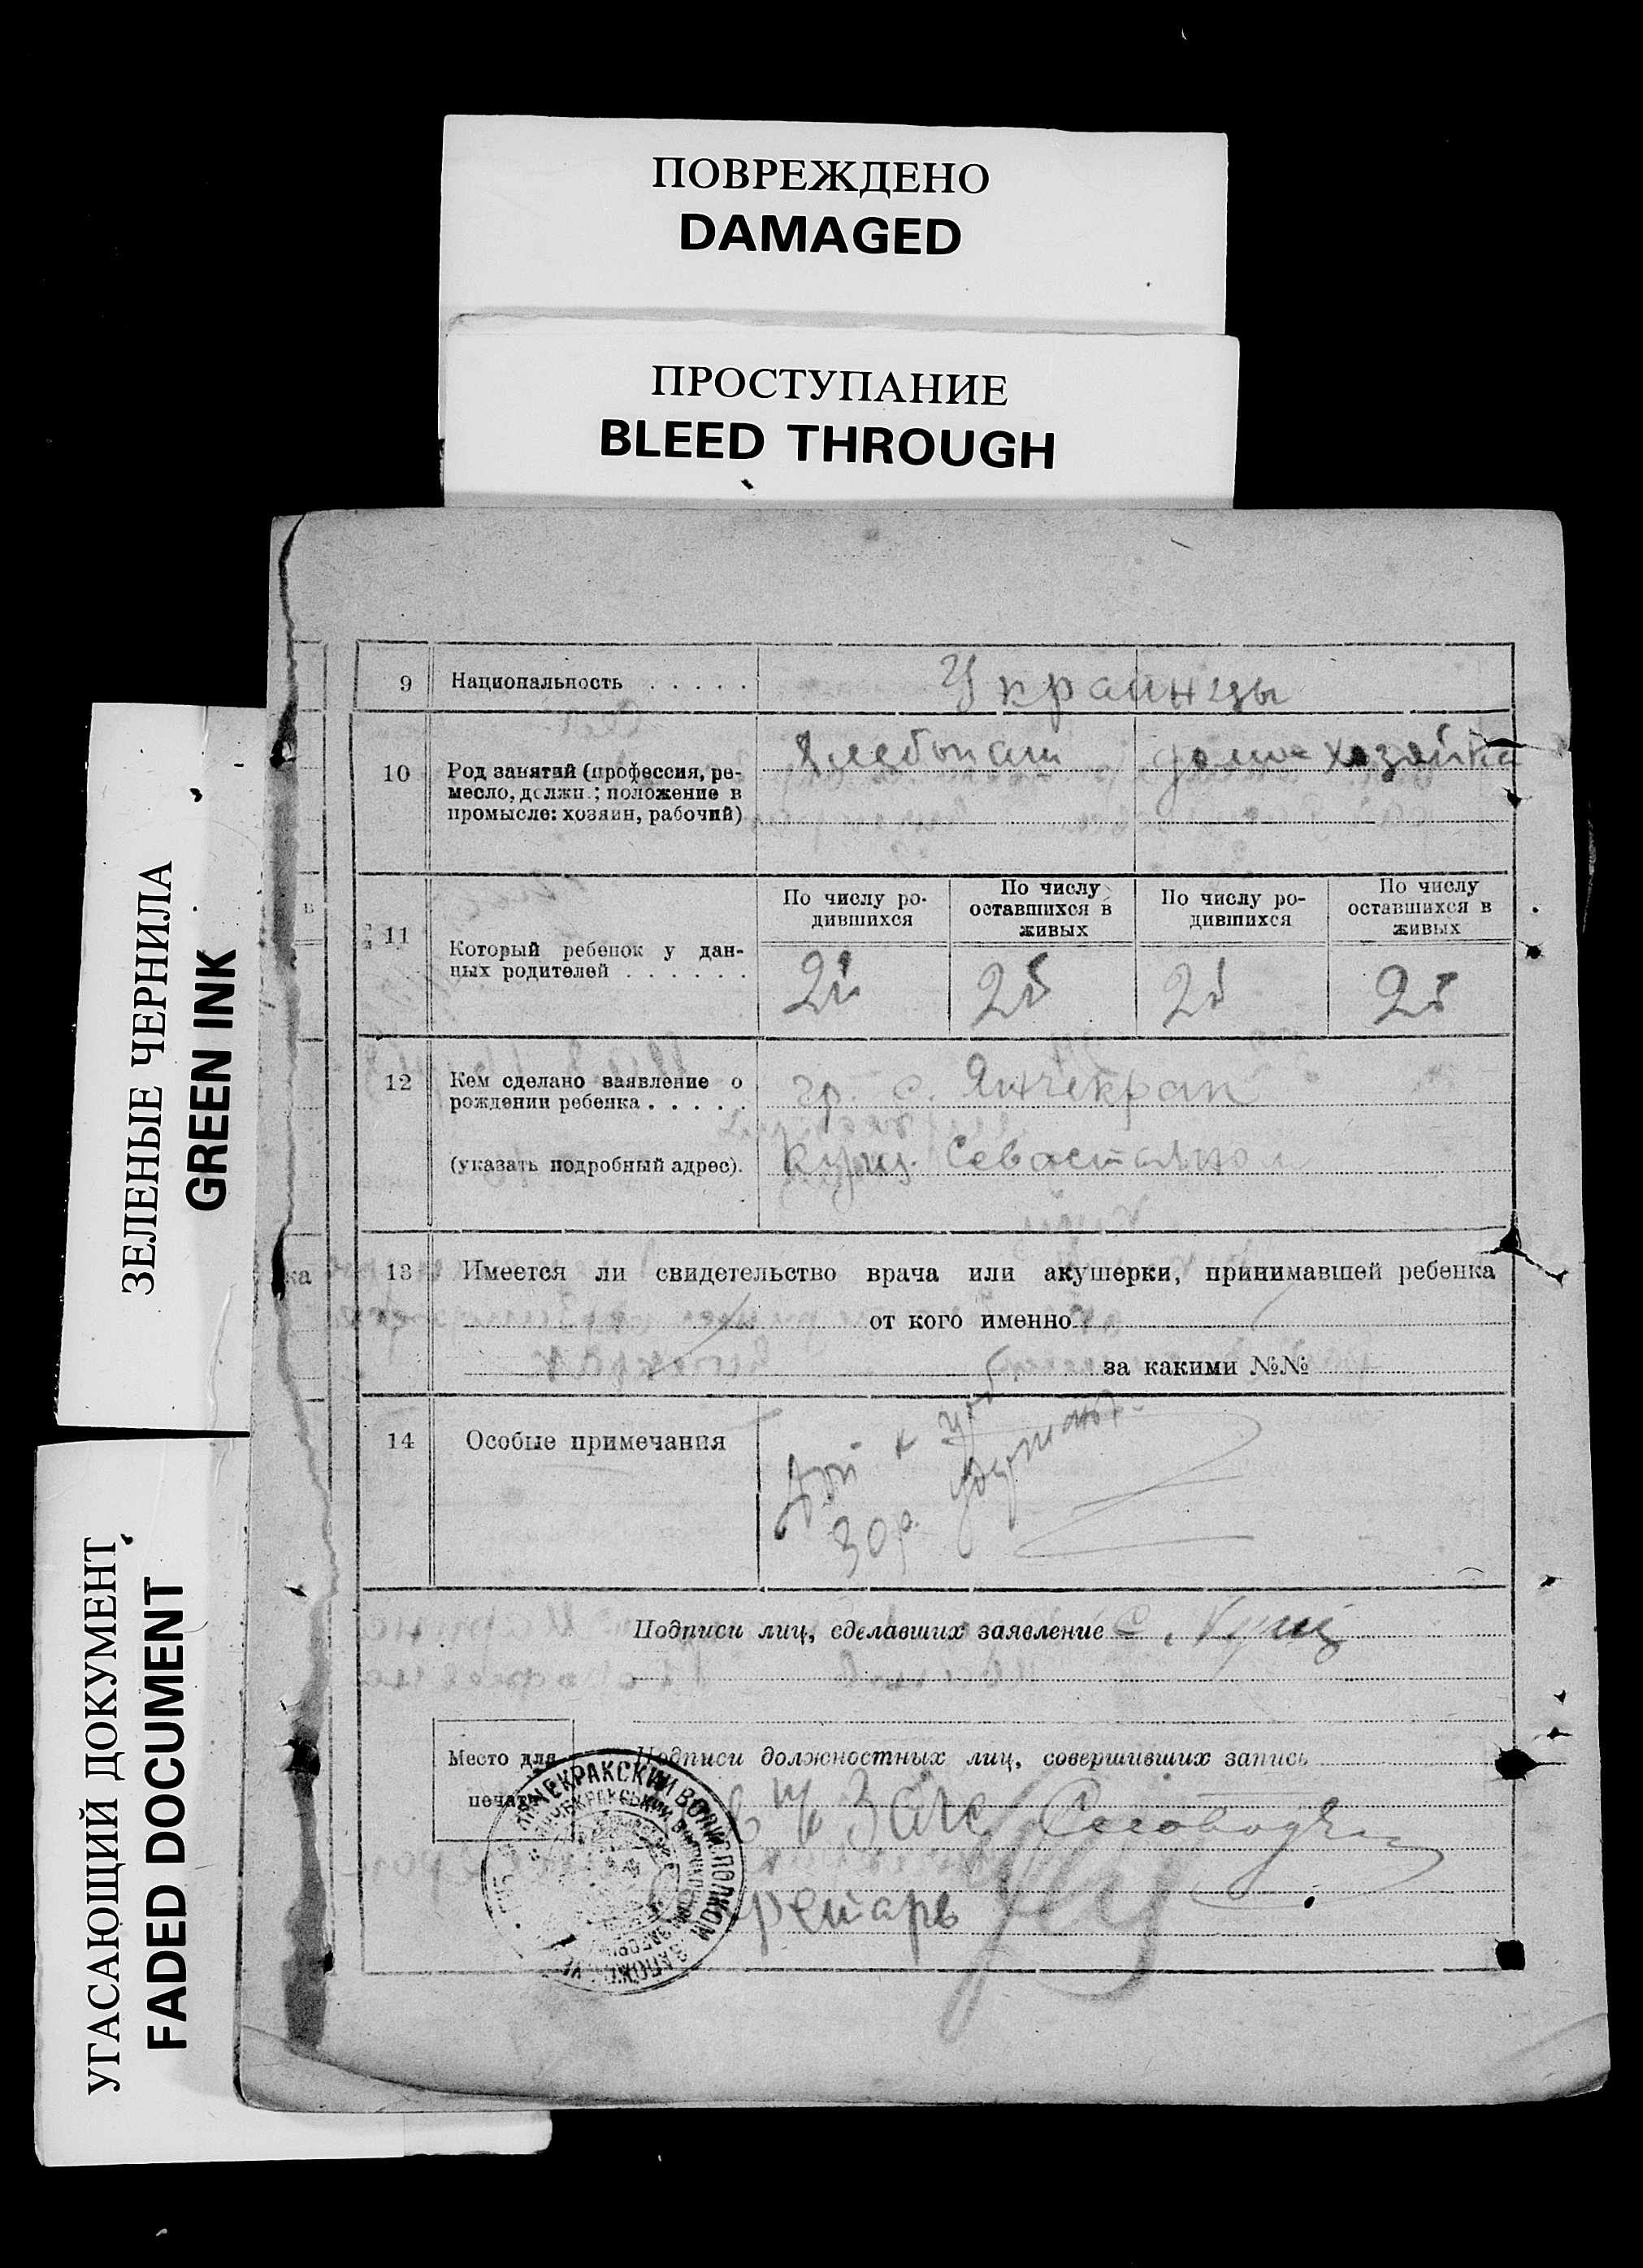 ПОВРЕЖДЕНО
DAMAGED
ПРОСТУПАНИЕ
BLEED THROUGH
ЗЕЛЕНЫЕ ЧЕРНИЛА
GREEN INK
УГАСАЮЩИЙ ДОКУМЕНТ
FADED DOCUMENT
9 Национальность . . . . . Украинцы
10 Род занятий (профессия, ре-
месло, должн.; положение в
промысле: хозяин, рабочий)
Хлебопаш домо-хозяйка
11 Который ребенок у дан-
ных родителей . . . . . .
По числу ро-
дившихся
По числу
оставшихся в
живых
По числу ро-
дившихся
По числу
оставшихся в
живых
2й 2й 2й 2й
12 Кем сделано заявление о
рождении ребенка . . . . .
(указать подробный адрес).
гр. с. Янчекрак
Кущ Севастьян
13 Имеется ли свидетельство врача или акушерки, принимавшей ребенка
от кого именно
за какими №№
14 Особые примечания
30 р.
Подписи лиц, сделавших заявление С. Кущ
Место для
печати
Подписи должностных лиц, совершивших запись
Загс
Секретарь
ЯНЧЕКРАКСКИЙ ВОЛИСПОЛКОМ